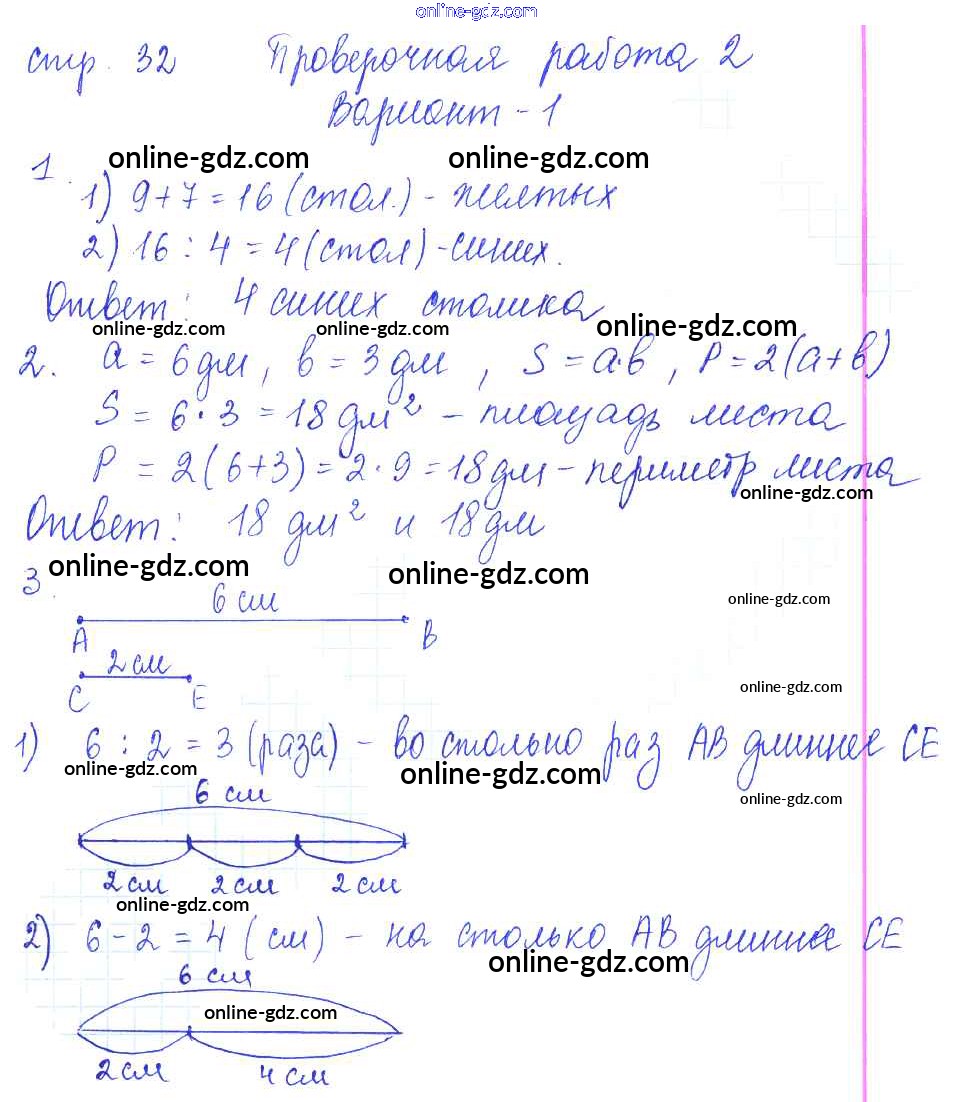 online-gdz.com
стр. 32 Проверочная работа 2
Вариант - 1
online-gdz.com online-gdz.com
1.
1) 9+7=16 (стол.) - желтых
2) 16 : 4 = 4 (стол) - синих.
Ответ: 4 синих столика
online-gdz.com online-gdz.com online-gdz.com
2. a = 6 дм, b = 3 дм, S = a·b, P = 2(a+b)
S = 6·3 = 18 дм² - площадь листа
P = 2(6+3) = 2·9 = 18 дм - периметр листа
online-gdz.com
Ответ: 18 дм² и 18 дм
online-gdz.com online-gdz.com
3.
6 см
online-gdz.com
A B
2 см
C E
online-gdz.com
1) 6 : 2 = 3 (раза) - во столько раз AB длиннее CE
online-gdz.com online-gdz.com
6 см
online-gdz.com
2 см 2 см 2 см
online-gdz.com
2) 6 - 2 = 4 (см) - на столько AB длиннее CE
online-gdz.com
6 см
online-gdz.com
2 см 4 см